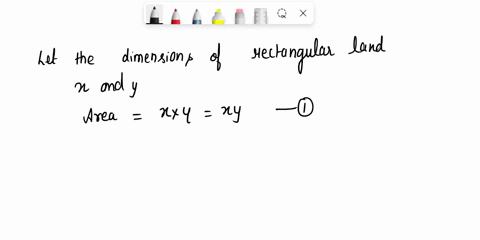 Let the dimensions of rectangular land
x and y
Area = x×y = xy —①